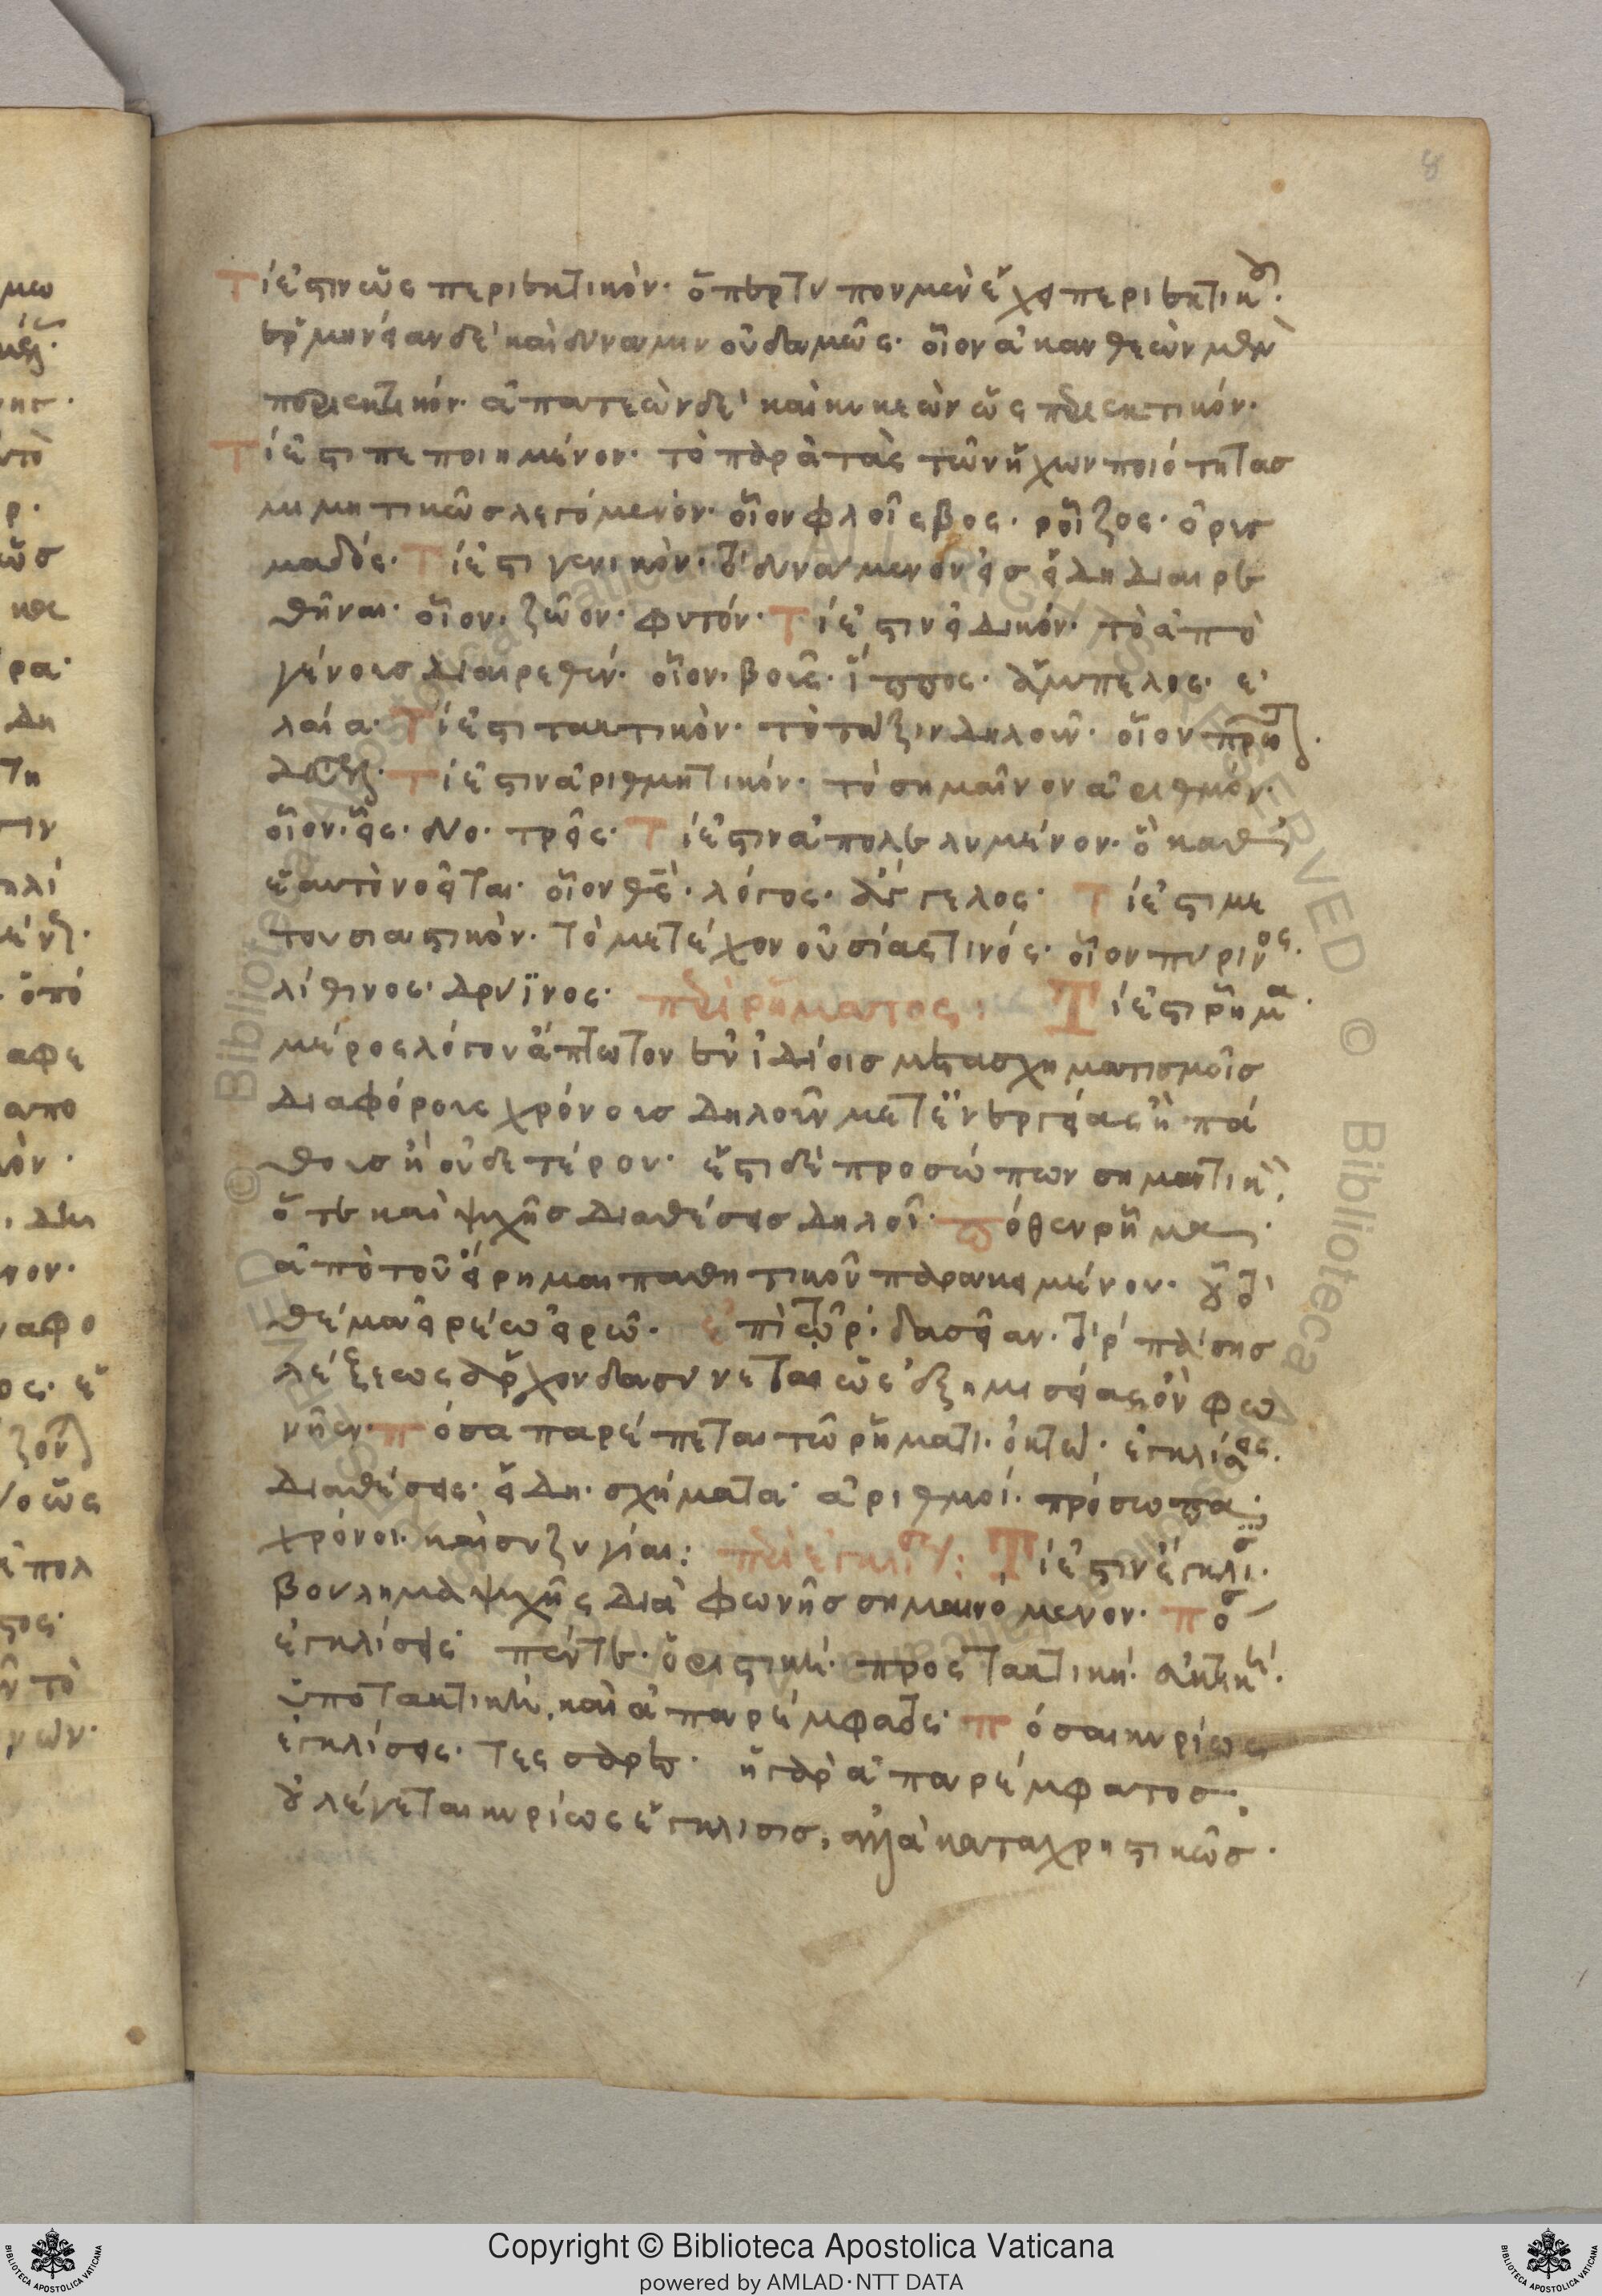 8
Τί ἐστιν ὡς περιεκτικόν· ὅπερ τύπον μὲν ἔχει περιεκτικοῦ·
ἑρμηνείαν δὲ καὶ δύναμιν οὐδαμῶς· οἷον ἀκανθεὼν μὲν
περιεκτικόν· ἀπατεὼν δὲ καὶ κυκεὼν ὡς περιεκτικόν·
Τί ἐστι πεποιημένον· τὸ παρὰ τὰς τῶν ἤχων ποιότητας
μιμητικῶς λεγόμενον· οἷον φλοῖσβος· ῥοῖζος· ὀρυγ
μαδός· Τί ἐστι γενικόν· τὸ δυνάμενον εἰς εἴδη διαιρε
θῆναι· οἷον· ζῶον· φυτόν· Τί ἐστιν εἰδικόν· τὸ ἀπὸ
γένους διαιρεθέν· οἷον· βοῦς· ἵππος· ἄμπελος· ἐ
λαία· Τί ἐστι τακτικόν· τὸ τάξιν δηλοῦν· οἷον πρῶτος·
δεύτερος· Τί ἐστιν ἀριθμητικόν· τὸ σημαῖνον ἀριθμόν·
οἷον· εἷς· δύο· τρεῖς· Τί ἐστιν ἀπολελυμένον· ὃ καθ'
ἑαυτὸ νοεῖται· οἷον θς· λόγος· ἄγγελος· Τί ἐστι με
τουσιαστικόν· τὸ μετέχον οὐσίας τινός· οἷον πύρινος·
λίθινος· δρύϊνος· περὶ ῥήματος: Τί ἐστι ῥῆμα·
μέρος λόγου ἄπτωτον ἐν ἰδίοις μετασχηματισμοῖς
διαφόρους χρόνους δηλοῦν μετ' ἐνεργείας ἢ πά
θους ἢ οὐδετέρου· ἔστι δὲ προσώπων σημαντικὸν·
ὅτε καὶ ψυχῆς διαθέσεις δηλοῖ· πόθεν ῥῆμα·
ἀπὸ τοῦ εἴρημαι παθητικοῦ παρακειμένου· οὗ τὸ
θέμα εἰρέω εἰρῶ· ἐπὶ τῶ ῥ· δασεῖαν· τὸ ῥ πάσης
λέξεως ἄρχον δασύνεται ὡς δ' ἐξ ἡμισείας ὂν φω
νῆεν· πόσα παρέπεται τῶ ῥήματι· ὀκτώ· ἐγκλίσεις·
διαθέσεις· εἴδη· σχήματα· ἀριθμοί· πρόσωπα·
χρόνοι· καὶ συζυγίαι: περὶ ἐγκλίσεως: Τί ἐστιν ἔγκλισις·
βούλημα ψυχῆς διὰ φωνῆς σημαινόμενον· πόσαι
ἐγκλίσεις· πέντε· ὁριστική· προστακτική· εὐκτική·
ὑποτακτική, καὶ ἀπαρέμφατος· πόσαι κυρίως
ἐγκλίσεις· τέσσαρες· ἡ γὰρ ἀπαρέμφατος,
οὐ λέγεται κυρίως ἔγκλισις, ἀλλὰ καταχρηστικῶς·
Copyright © Biblioteca Apostolica Vaticana
powered by AMLAD·NTT DATA